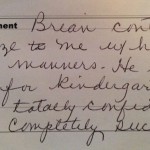 ment Brian cont
ze to me w/h
manners. He
for kindergar
totally confid
completely suc